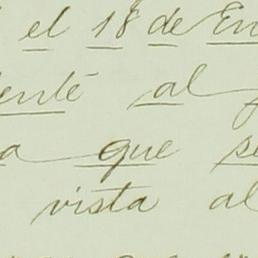 el 18 de En
ente al
a que se
vista al